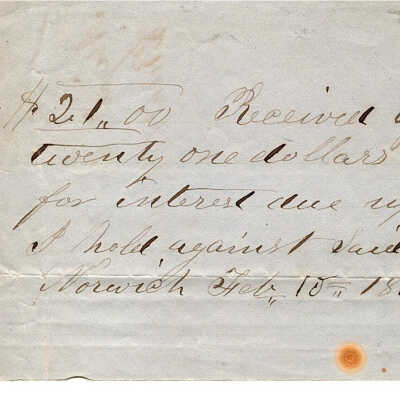 $21,, 00 Received
twenty one dollars
for interest due
I hold against said
Norwich Feb,, 15,, 18